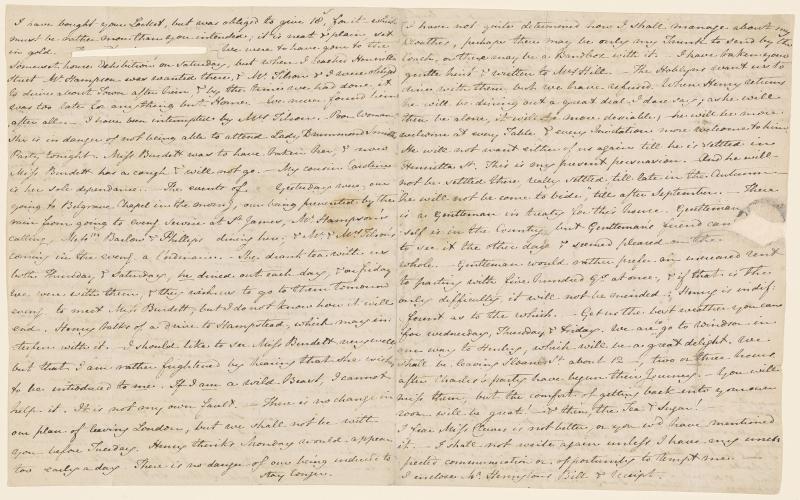 I have bought your Locket, but was obliged to give 18ˢ for it — which
must be rather more than you intended; it is neat & plain, set
in gold. We were to have gone to the
Somerset house Exhibition on Saturday, but when I reached Henrietta
Street Mr Hampson was wanted there, & Mr Tilson & I were obliged
to drive about Town after him, & by the time we had done, it
was too late for anything but Home. — We never found him
after all. — I have been interrupted by Mrs Tilson. — Poor Woman!
She is in danger of not being able to attend Lady Drummond Smiths
Party tonight. Miss Burdett was to have taken her, & now
Miss Burdett has a cough & will not go. — My cousin Caroline
is her sole dependance. — The events of Yesterday were, our
going to Belgrave Chapel in the morng, our being prevented by the
rain from going to eveng Service at St James, Mr Hampson's
calling, Messrs Barlow & Phillips dining here; & Mr & Mrs Tilson's
coming in the eveng a l'ordinaire. — She drank tea with us
both Thursday & Saturday, he dined out each day, & on friday
we were with them, & they wish us to go to them tomorrow
eveng to meet Miss Burdett, but I do not know how it will
end. Henry talks of a drive to Hampstead, which may in-
terfere with it. — I should like to see Miss Burdett very well
but that I am rather frightened by hearing that she wishes
to be introduced to me. — If I am a wild Beast, I cannot
help it. It is not my own fault. — There is no change in
our plan of leaving London, but we shall not be with
you before Tuesday. Henry thinks Monday would appear
too early a day. There is no danger of our being induced to
stay longer.
I have not quite determined how I shall manage about my
Cloathes, perhaps there may be only my Trunk to send by the
Coach, or there may be a Bandbox with it. — I have taken your
gentle hint & written to Mrs Hill. — The Hoblyns want us to
dine with them, but we have refused. When Henry returns
he will be dining out a great deal I dare say; as he will
then be alone, it will be more desirable; — he will be more
welcome at every Table, & every Invitation more welcome to him.
He will not want either of us again till he is settled in
Henrietta St. This is my present persuasion. — And he will
not be settled there, really settled, till late in the Autumn —
"he will not be come to bide," till after September. — There
is a Gentleman in treaty for this house. Gentleman him-
self is in the Country, but Gentleman's friend came
to see it the other day & seemed pleased on the
whole. — Gentleman would rather prefer an increased rent
to parting with five hundred Gs at once; & if that is the
only difficulty, it will not be minded. Henry is indif-
ferent as to the which. — Get us the best weather you can
for wednesday, Thursday & Friday. We are to go to Windsor in
our way to Henley, which will be a great delight. We
shall be leaving Sloane St about 12 —, two or three hours
after Charles's party have begun their Journey. — You will
miss them, but the comfort of getting back into your own
room will be great! — & then, the Tea & Sugar! —
I fear Miss Clewes is not better, or you wd have mentioned
it. — I shall not write again unless I have any unex-
pected communication or opportunity to tempt me. —
I enclose Mr Herington's Bill & receipt.